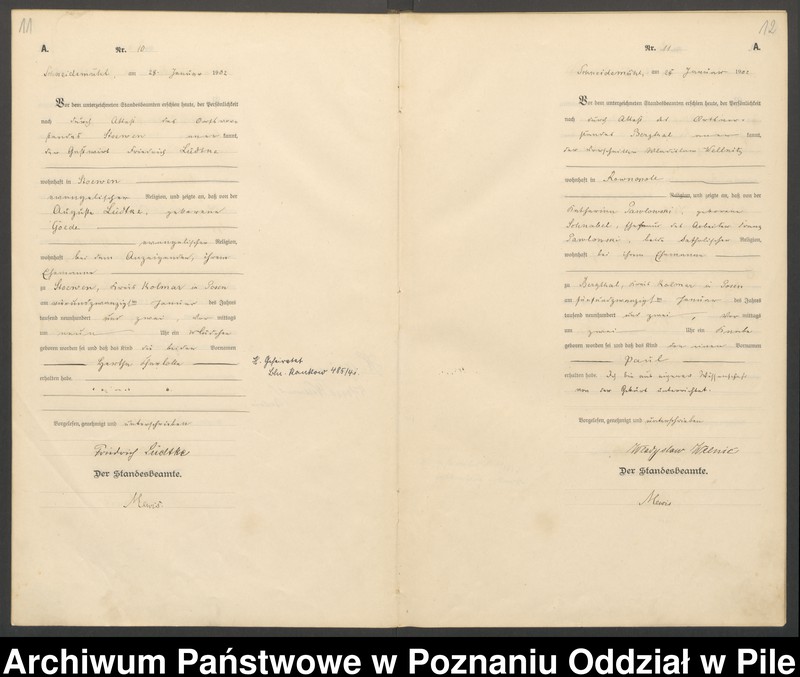 11
A.
Nr. 10
Schneidemühl, am 28 Januar 1902
Vor dem unterzeichneten Standesbeamten erschien heute, der Persönlichkeit
nach durch Attest des Ortsvor-
standes kannt,
der Gastwirt Friedrich Lüdtke
wohnhaft in
evangelischer Religion, und zeigte an, daß von der
Auguste Lüdtke, geborene
Goede
, evangelischer Religion,
wohnhaft bei dem Anzeigenden, ihrem
Ehemanne
zu Kreis Kolmar in Posen
am vierundzwanzigsten Januar des Jahres
tausend neunhundert und zwei, Vor mittags
um neun Uhr ein Mädchen
geboren worden sei und daß das Kind die beiden Vornamen
Hertha
erhalten habe.
Vorgelesen, genehmigt und unterschrieben
Friedrich Lüdtke
Der Standesbeamte.
Mewis
Geheiratet
12
Nr. 11
A.
Schneidemühl, am 28 Januar 1902
Vor dem unterzeichneten Standesbeamten erschien heute, der Persönlichkeit
nach durch Attest des Ortsvor-
standes Bergthal kannt,
der
wohnhaft in
Religion, und zeigte an, daß von der
Katharina Pawlowski, geborene
Ehefrau des Arbeiters Franz
Pawlowski, beide katholischer Religion,
wohnhaft bei ihrem Ehemanne
zu Bergthal, Kreis Kolmar in Posen
am fünfundzwanzigsten Januar des Jahres
tausend neunhundert und zwei, Vor mittags
um zwei Uhr ein Knabe
geboren worden sei und daß das Kind den einen Vornamen
Paul
erhalten habe. Ich bin aus eigener Wissenschaft
von der Geburt unterrichtet.
Vorgelesen, genehmigt und unterschrieben
Der Standesbeamte.
Mewis
Archiwum Państwowe w Poznaniu Oddział w Pile